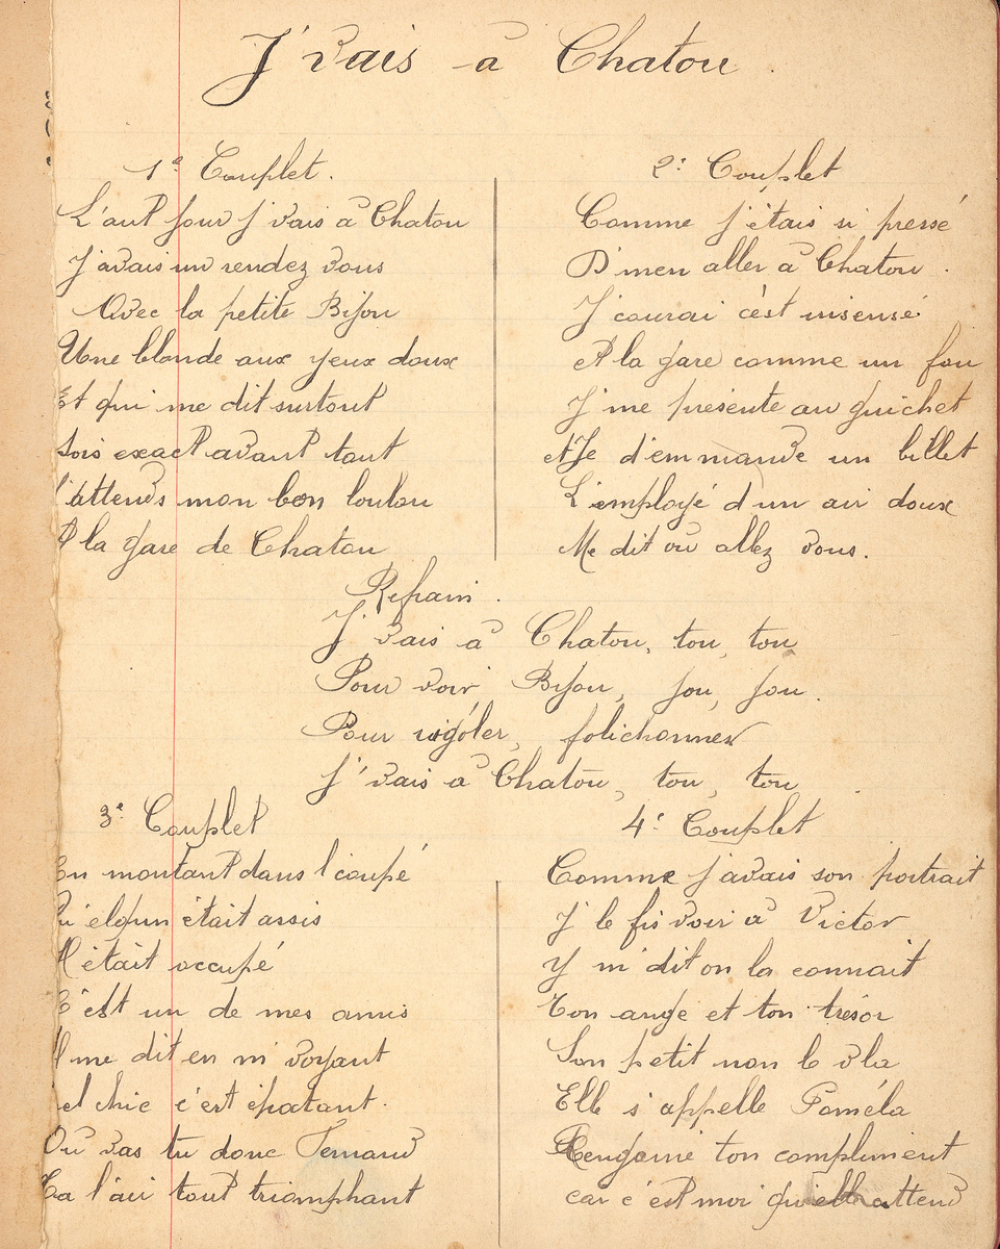 J'vais à Chatou.
1e Couplet.
L'aut jour j'vais à Chatou
J'avais un rendez vous
Avec la petite Bijou
Une blonde aux yeux doux
Et qui me dit surtout
Sois exact avant tout
J'attends mon bon loulou
A la gare de Chatou
2e Couplet
Comme j'étais si pressé
D'men aller à Chatou.
J'courai c'est insensé
A la gare comme un fou
J'me présente au guichet
Et Je d'emmande un billet
L'employé d'un air doux
Me dit où allez vous.
Refrain.
J'vais à Chatou, tou, tou
Pour voir Bijou, jou, jou.
Pour rigoler, folichonner
J'vais à Chatou, tou, tou
3e Couplet
En montant dans l'coupé
Qu'elqun était assis
Il était occupé
C'est un de mes amis
Il me dit en m'voyant
el chic c'est épatant.
Où vas tu donc Fernand
Ta l'air tout triomphant
4e Couplet
Comme j'avais son portrait
J'le fis voir à Victor
Y m'dit on la connait
Ton ange et ton trésor
Son petit nom le vla
Elle s'appelle Paméla
Rengaine ton compliment
car c'est moi qu'elle attend